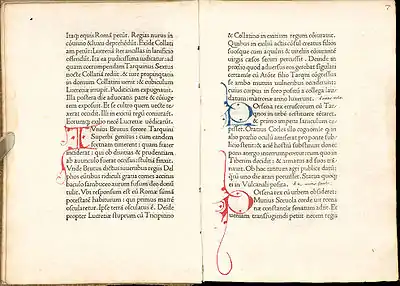 Itaq; equis Romā petūt. Regias nurus in
cōuiuio & luxu deprehēdūt. Exide Collati
am petūt: Lucretiā iter ancillas in lanificio
offēdūt. Ita ea pudicissima iudicatur: ad
quam corrumpendam Tarquinius Sextus
nocte Collatiā rediit. & iure propinquita
in domum Collatini uenit & cubiculum
Lucretiæ irrupit. Pudicitiam expugnauit.
Illa postera die aduocatis patre & cōiuge
rem exposuit. Et se cultro quem ueste te
xerat occidit. Illi in exitiū regū coniurarūt.
Eorumq; exilio necē Lucretiæ uēdicarūt.
IVnius Brutus sorore Tarquinii
Superbi genitus: cum eandem
fortunam timeret: quam frater
inciderat: qui ob diuitias & prudentiam
ab auunculo fuerat occisus: stultitiā finxit.
Vnde Brutus dictus iuuenibus regiis Del
phos eūtibus ridiculi gratia comes accitus
baculo sambuceo aurum fusum deo donū
tulit. Vbi responsum est: eū Romæ sūmā
potestatē habiturum: qui primus matrē
oscularetur. Ipse terrā osculatus ē. Deide
propter Lucretiæ stuprum cū Tricipitino
& Collatino in exitium regum cōiurauit.
Quibus in exiliū actis cōsul creatus filios
suos quia cum aquiliis & uitelliis cōiurauerāt
uirgis cæsos securi percussit. Deinde in
prœlio quod aduersus eos gerebat singulari
certamie cū Arūte filio Tarqni cōgressus
se ambo mutuis uulneribus occiderunt:
cuius corpus in foro positū a collega lau
datum: matronæ anno luxerunt.
POrsena rex etruscorum cū Tar
quinios in urbē restituere tētaret.
& primo impetu Ianiculum cæ
pisset. Oratius Cocles illo cognomie q in
alio prœlio oculū amiserat pro ponte subli
cio stetit: & aciē hostiū substinuit: donec
pons a tergo interrumperetur cum quo in
Tiberim decidit: & armatus ad suos trā
nauit. Ob hoc tantum agri publico datū:
quātū uno die arari potuisset. Statua quoq;
ei in Vulcanali posita.
POrsena cū urbem obsideret:
Mutius Scæuola cordis uir roma
næ constantiæ senatum adiit. Et
ueniam transfugiendi petiit necem regis